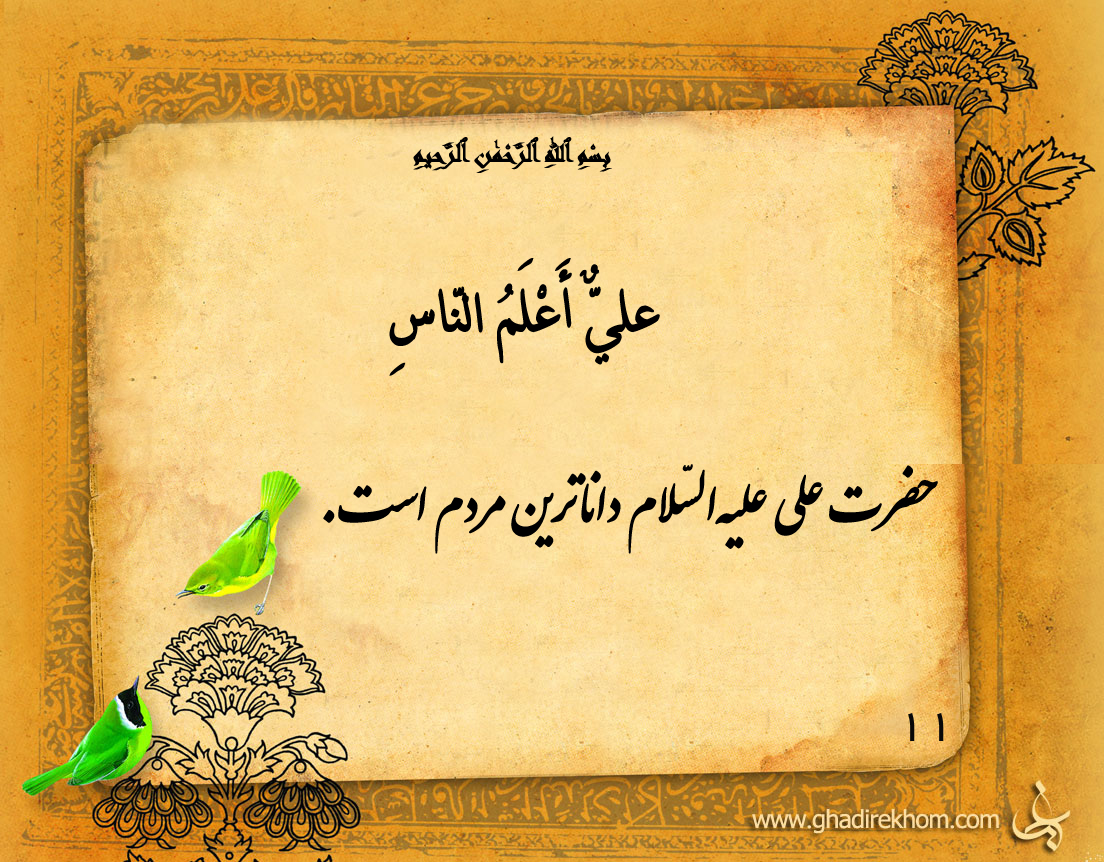 بِسْمِ ٱللَّهِ ٱلرَّحْمَٰنِ ٱلرَّحِيمِ
عليٌّ أَعْلَمُ النّاسِ
حضرت علی علیه‌السّلام داناترین مردم است.
۱۱
www.ghadirekhom.com